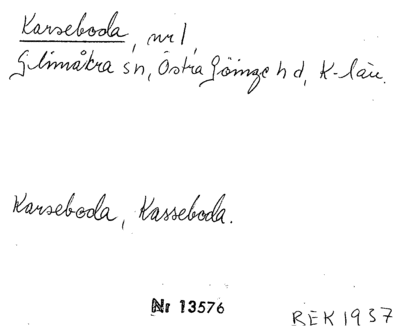 Karseboda, nr 1,
Glimåkra sn, Östra Göinge hd, K-län.
Karseboda, Kasseboda.
Nr 13576
BEK 1937